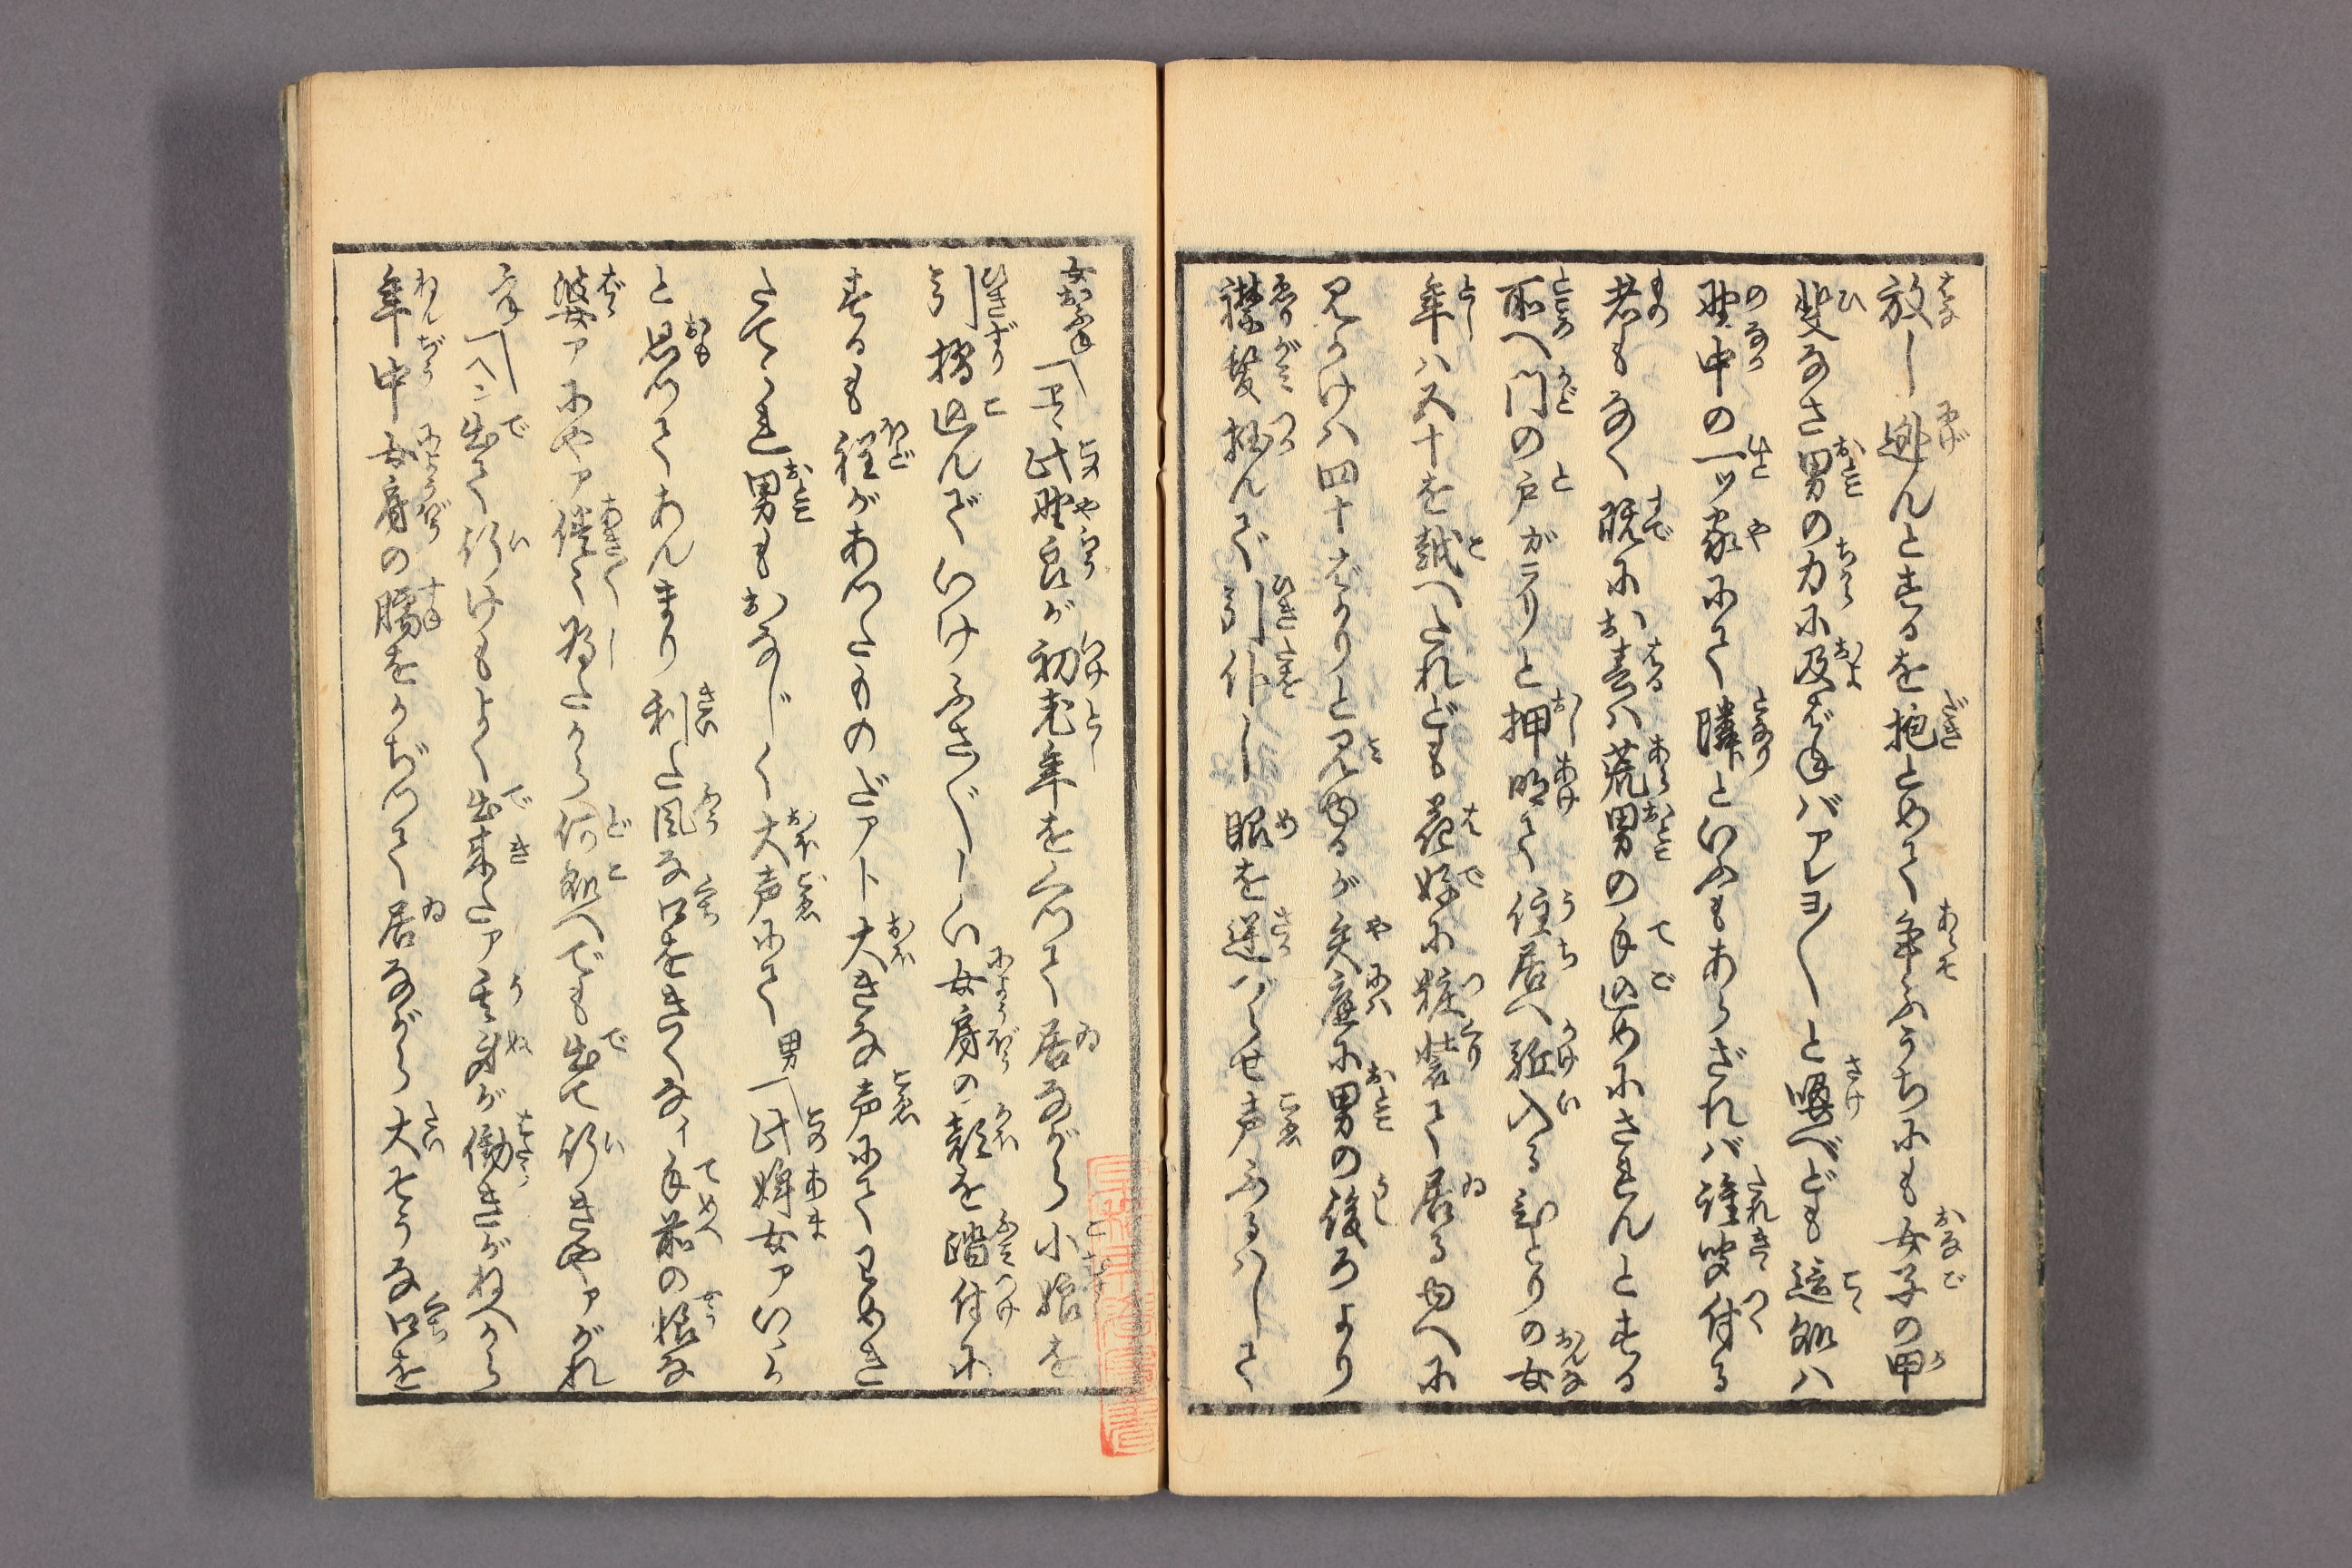 放し逃んとするを抱とめて争ふうちにも女子の甲
斐なさ男の力に及ばねバアレヨ〳〵と叫べども這処ハ
野中の一ツ家にて隣といふもあらざれバ誰聞付る
者もなく既にお春ハ荒男の手込めにされんとする
所へ門の戸ガラリと押明て住居へ駈入るひとりの女
年ハ五十を越へたれども花娵に粧装て居るゆへに
見かけハ四十ばかりと見ゆるが矢庭に男の後ろより
襟髪掴んで引仆し眼を逆バらせ声ふるハして
女房〽コレ此野良が初老年をくつて居ながら小娘を
引摺込んでいけふざ〴〵しい女房の顔を踏付に
するも程があつたものだアト大きな声にてわめき
たてられ男もおなじく大声にて 男〽此婢女アいゝか
と思つてあんまり利た風な口をきくなイ手前の様な
婆アにやア倦々為たから何処へでも出て行きやアがれ
女房〽ヘン出て行けもよく出来たア手前が働きがねへから
年中女房の臑をかぢつて居ながら大そうな口を